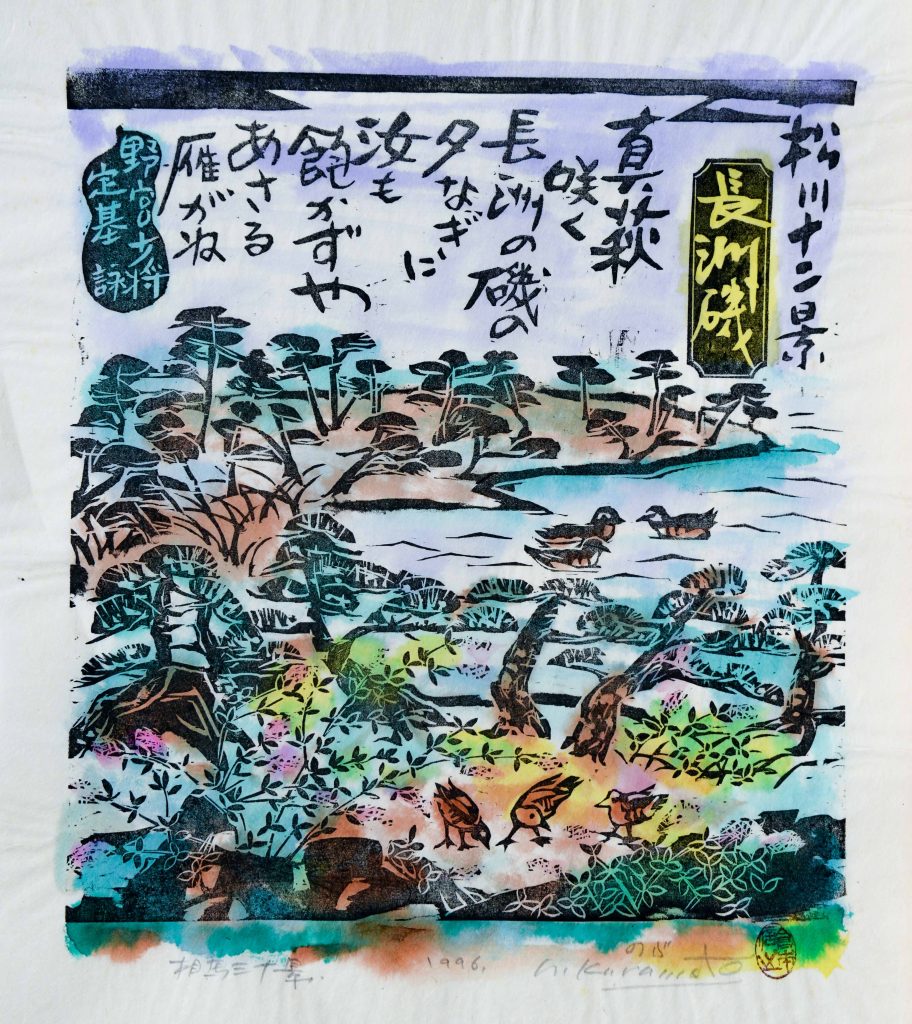 松川十二景
長洲磯
真萩
咲く
長洲の磯の
夕なぎに
汝も
飽かずや
あさる
雁がね
野宮少将
定基 詠
相馬三十景.
1996.